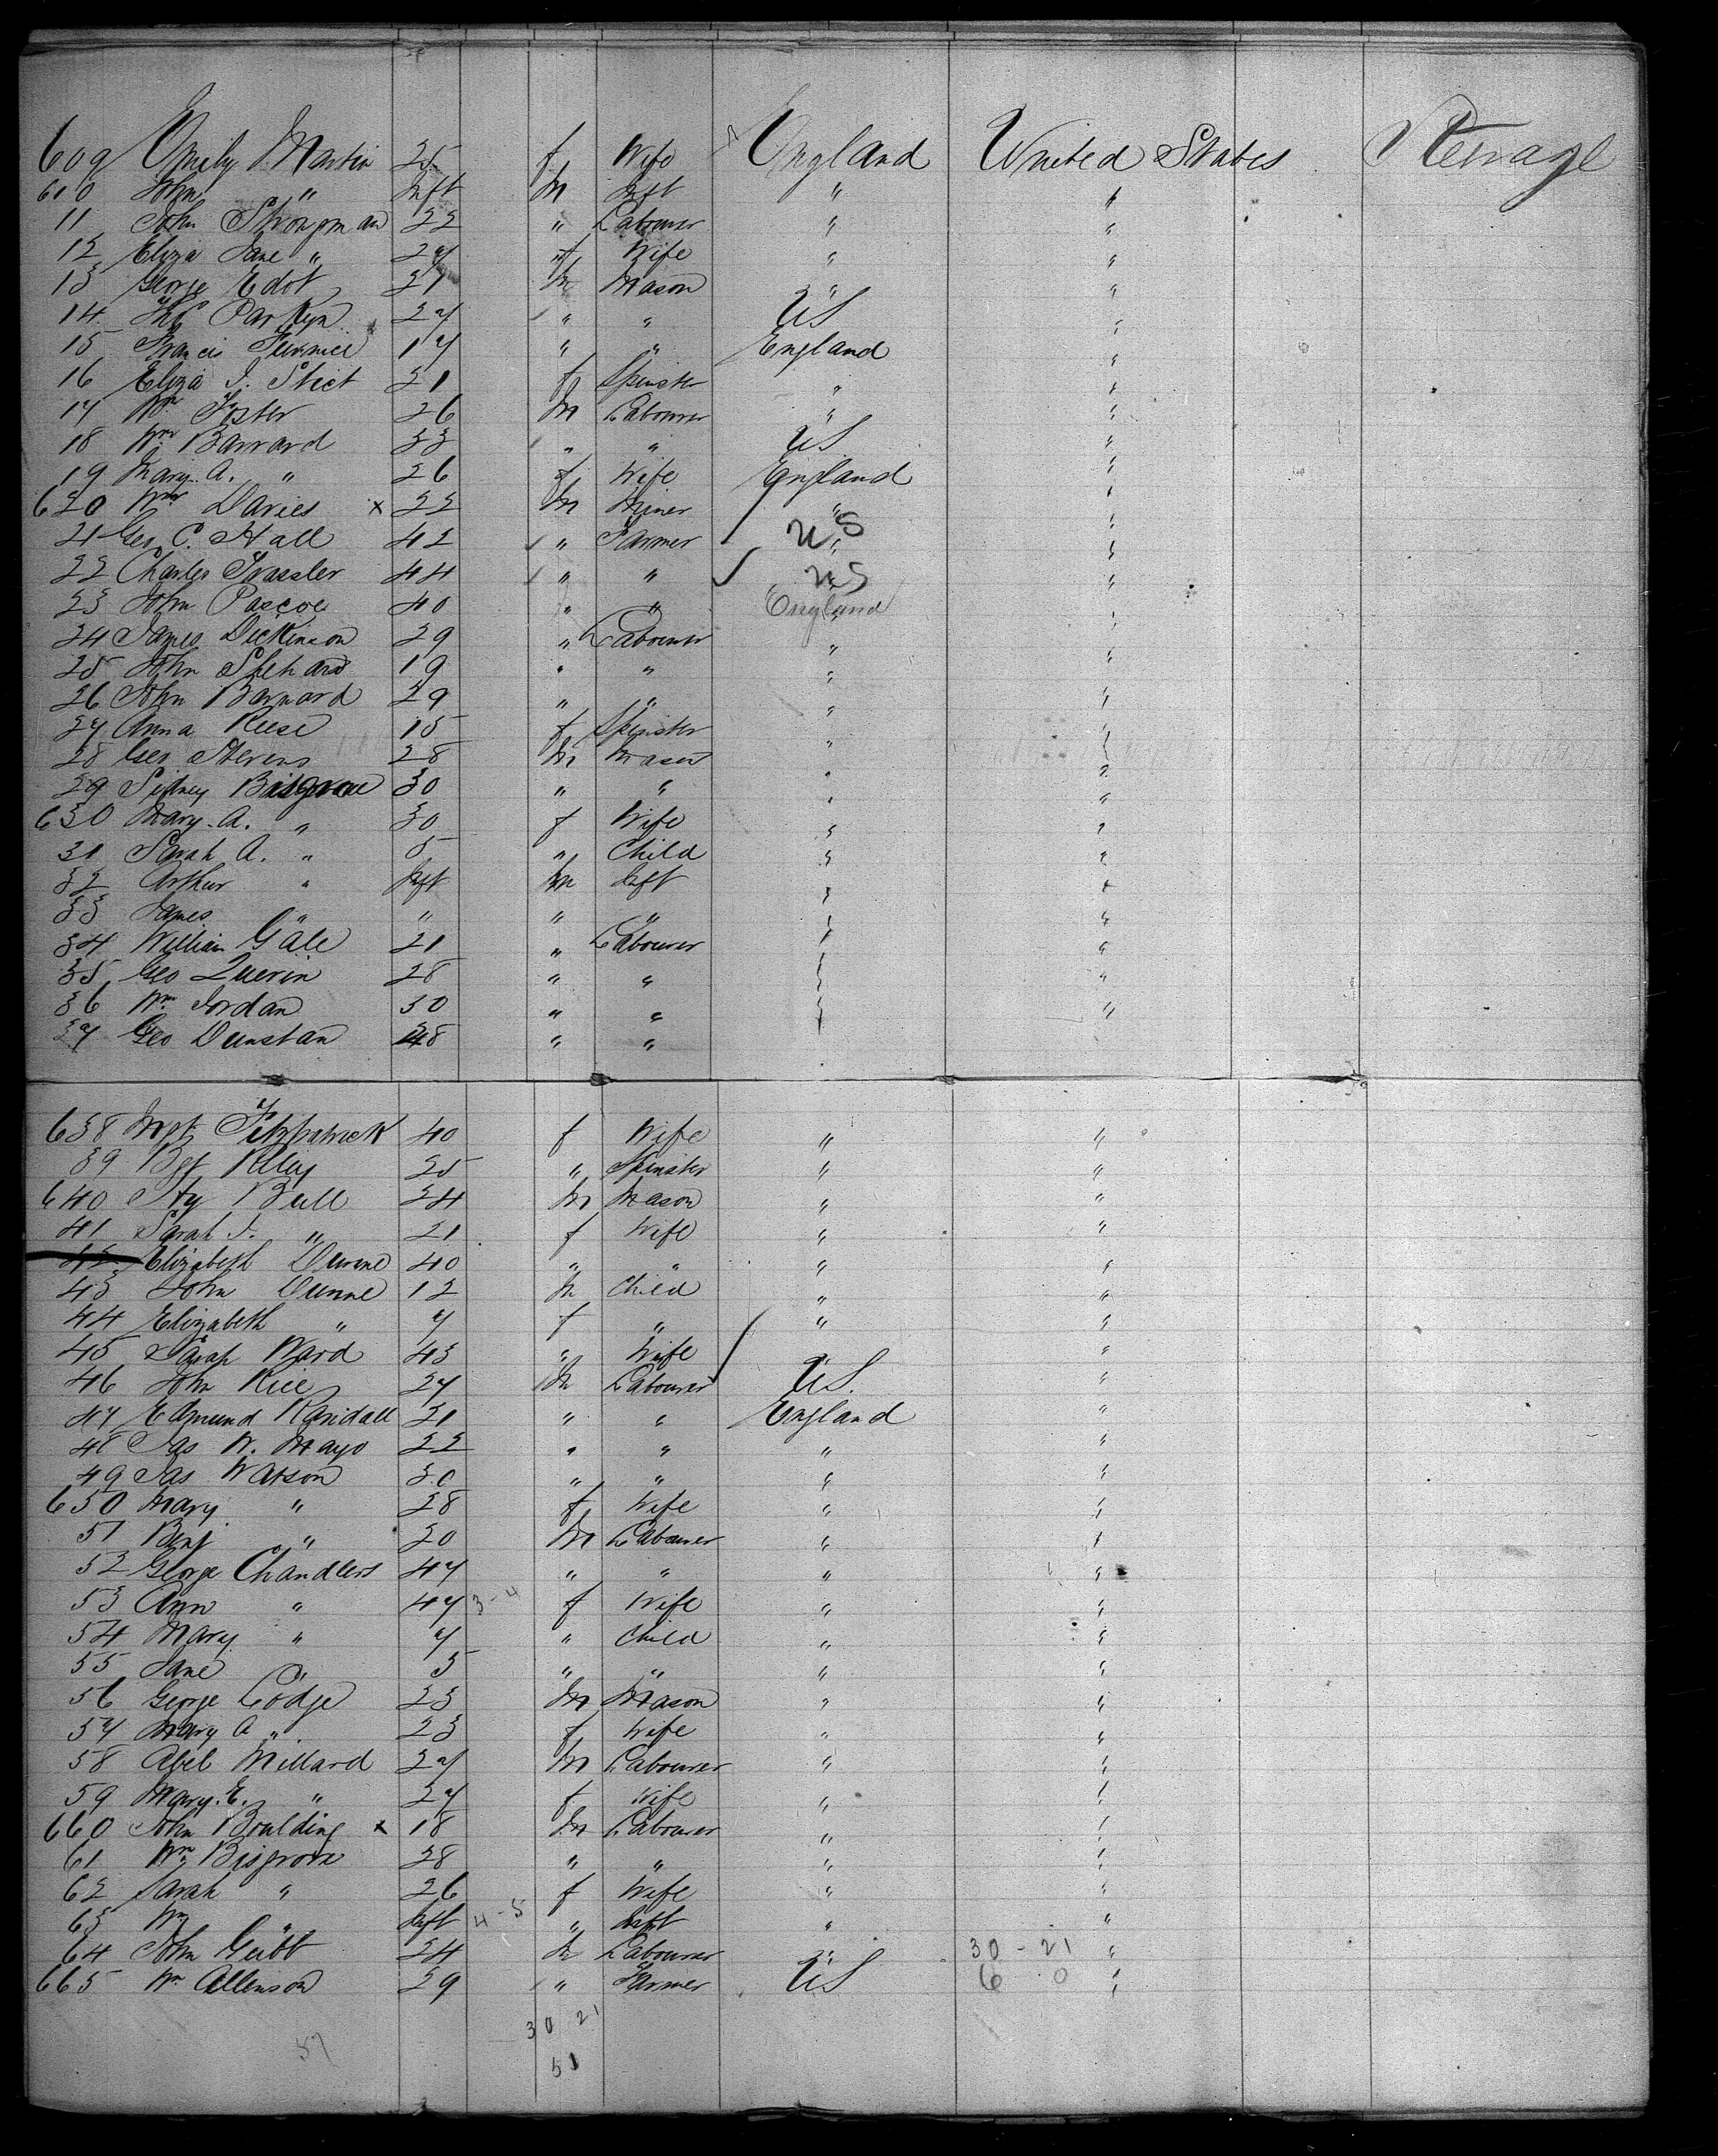 609 Emily Martin 25 f Wife England United States Steerage
610 John " Inft M Inft " "
11 John Strongman 22 " Labourer " "
12 Eliza Jane " 27 f Wife " "
13 George Edot 21 M Mason " "
14 Parkyn 27 " " US "
15 Francis 17 " " England "
16 Eliza J. 21 f Spinster " "
17 Wm Foster 26 M Labourer " "
18 Wm Barnard 33 " " US "
19 Mary A. " 26 f Wife England "
620 Wm Davies x 22 M Miner " "
21 Geo C. Hall 42 " Farmer US "
22 Charles Trassler 44 " " US "
23 John Pascoe 40 " " England "
24 James Dickinson 29 " Labourer " "
25 John 19 " " " "
26 John Barnard 29 " " " "
27 Anna Reese 15 f Spinster " "
28 Geo Stevens 28 M Mason " "
29 Sidney Bisgrove 30 " " " "
630 Mary A. " 30 f Wife " "
31 Sarah A. " 5 " Child " "
32 Arthur " Inft M Inft " "
33 James " " " " " "
34 William Gale 21 " Labourer " "
35 Geo Querin 28 " " " "
36 Wm Jordan 30 " " " "
37 Geo Dunstan 48 " " "
638 Mgt Fitzpatrick 40 f Wife " "
39 Bgt Riley 25 " Spinster " "
640 Hy Bull 24 M Mason " "
41 Sarah J. " 21 f Wife " "
42 Elizabeth Dunne 40 " " " "
43 John Dunne 12 M Child " "
44 Elizabeth " 7 f " " "
45 Sarah Ward 43 " Wife " "
46 John Rice 27 M Labourer US. "
47 Edmund Randall 21 " " England "
48 Jas W. Mayo 22 " " " "
49 Jas Watson 30 " " " "
650 Mary " 28 f Wife " "
51 Benj " 20 M Labourer " "
52 George Chandlers 47 " " " "
53 Ann " 47 3-4 f Wife " "
54 Mary " 7 " Child " "
55 Jane " 5 " " " "
56 George Lodge 23 M Mason " "
57 Mary A " 23 f Wife " "
58 Abel Millard 27 M Labourer " "
59 Mary E. " 27 f Wife " "
660 John Boulding x 18 M Labourer " "
61 Wm Bisgrove 28 " " " "
62 Sarah " 26 f Wife " "
63 Wm " Inft 4-5 " Inft " "
64 John 24 M Labourer " 30-21 "
665 Wm Allenson 29 " Farmer US 6 0 "
30 21
51